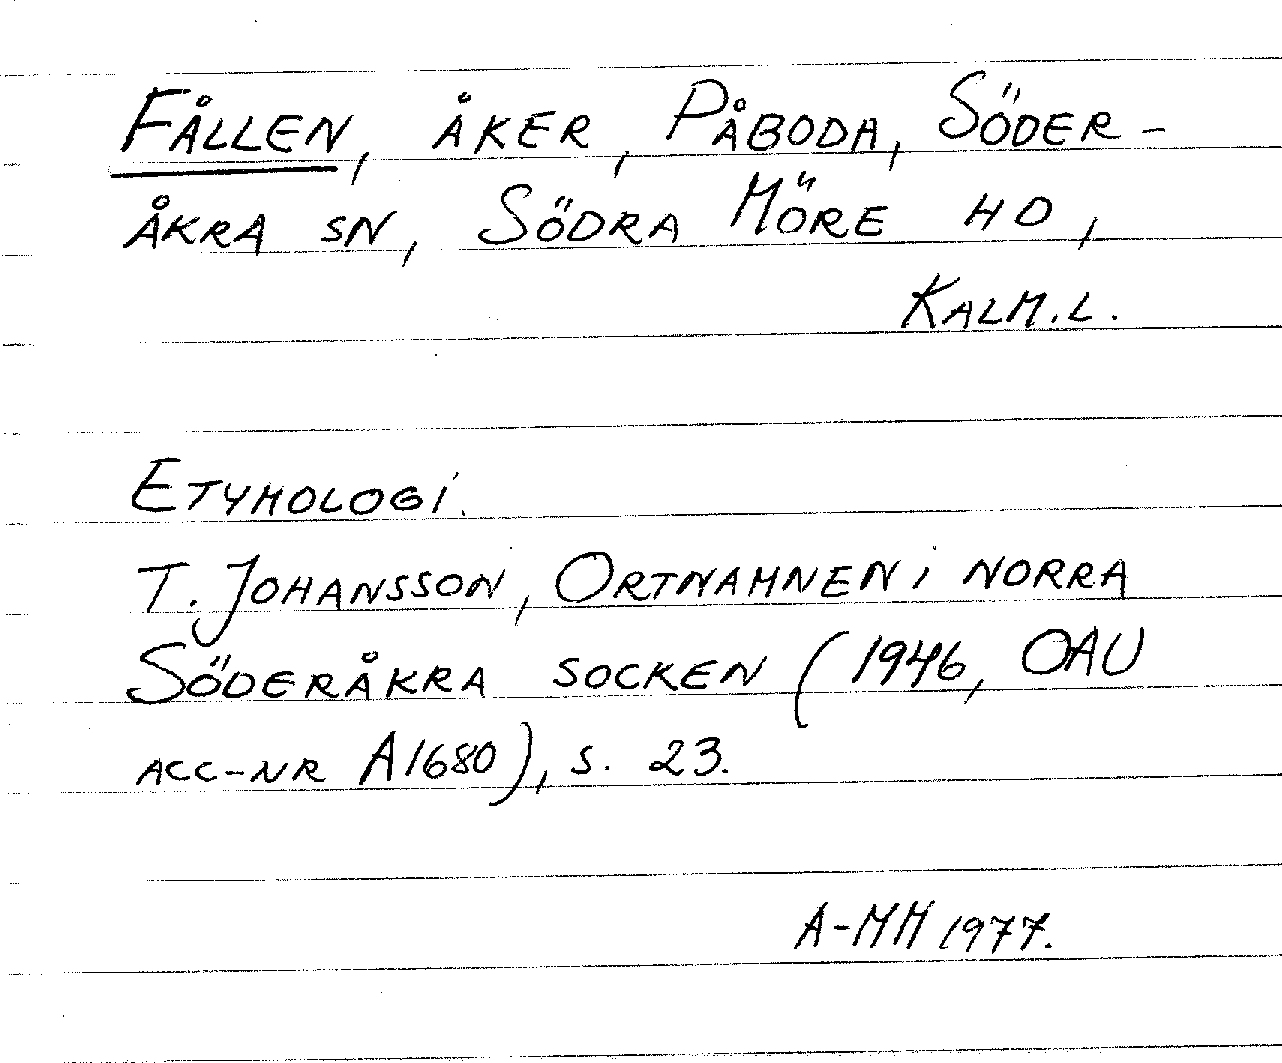 Fållen, åker, Påboda, Söder-
åkra sn, Södra Möre hd,
Kalm.l.
Etymologi.
T. Johansson, Ortnamnen i norra
Söderåkra socken (1946, OAU
acc-nr A1680), s. 23.
A-MM 1977.